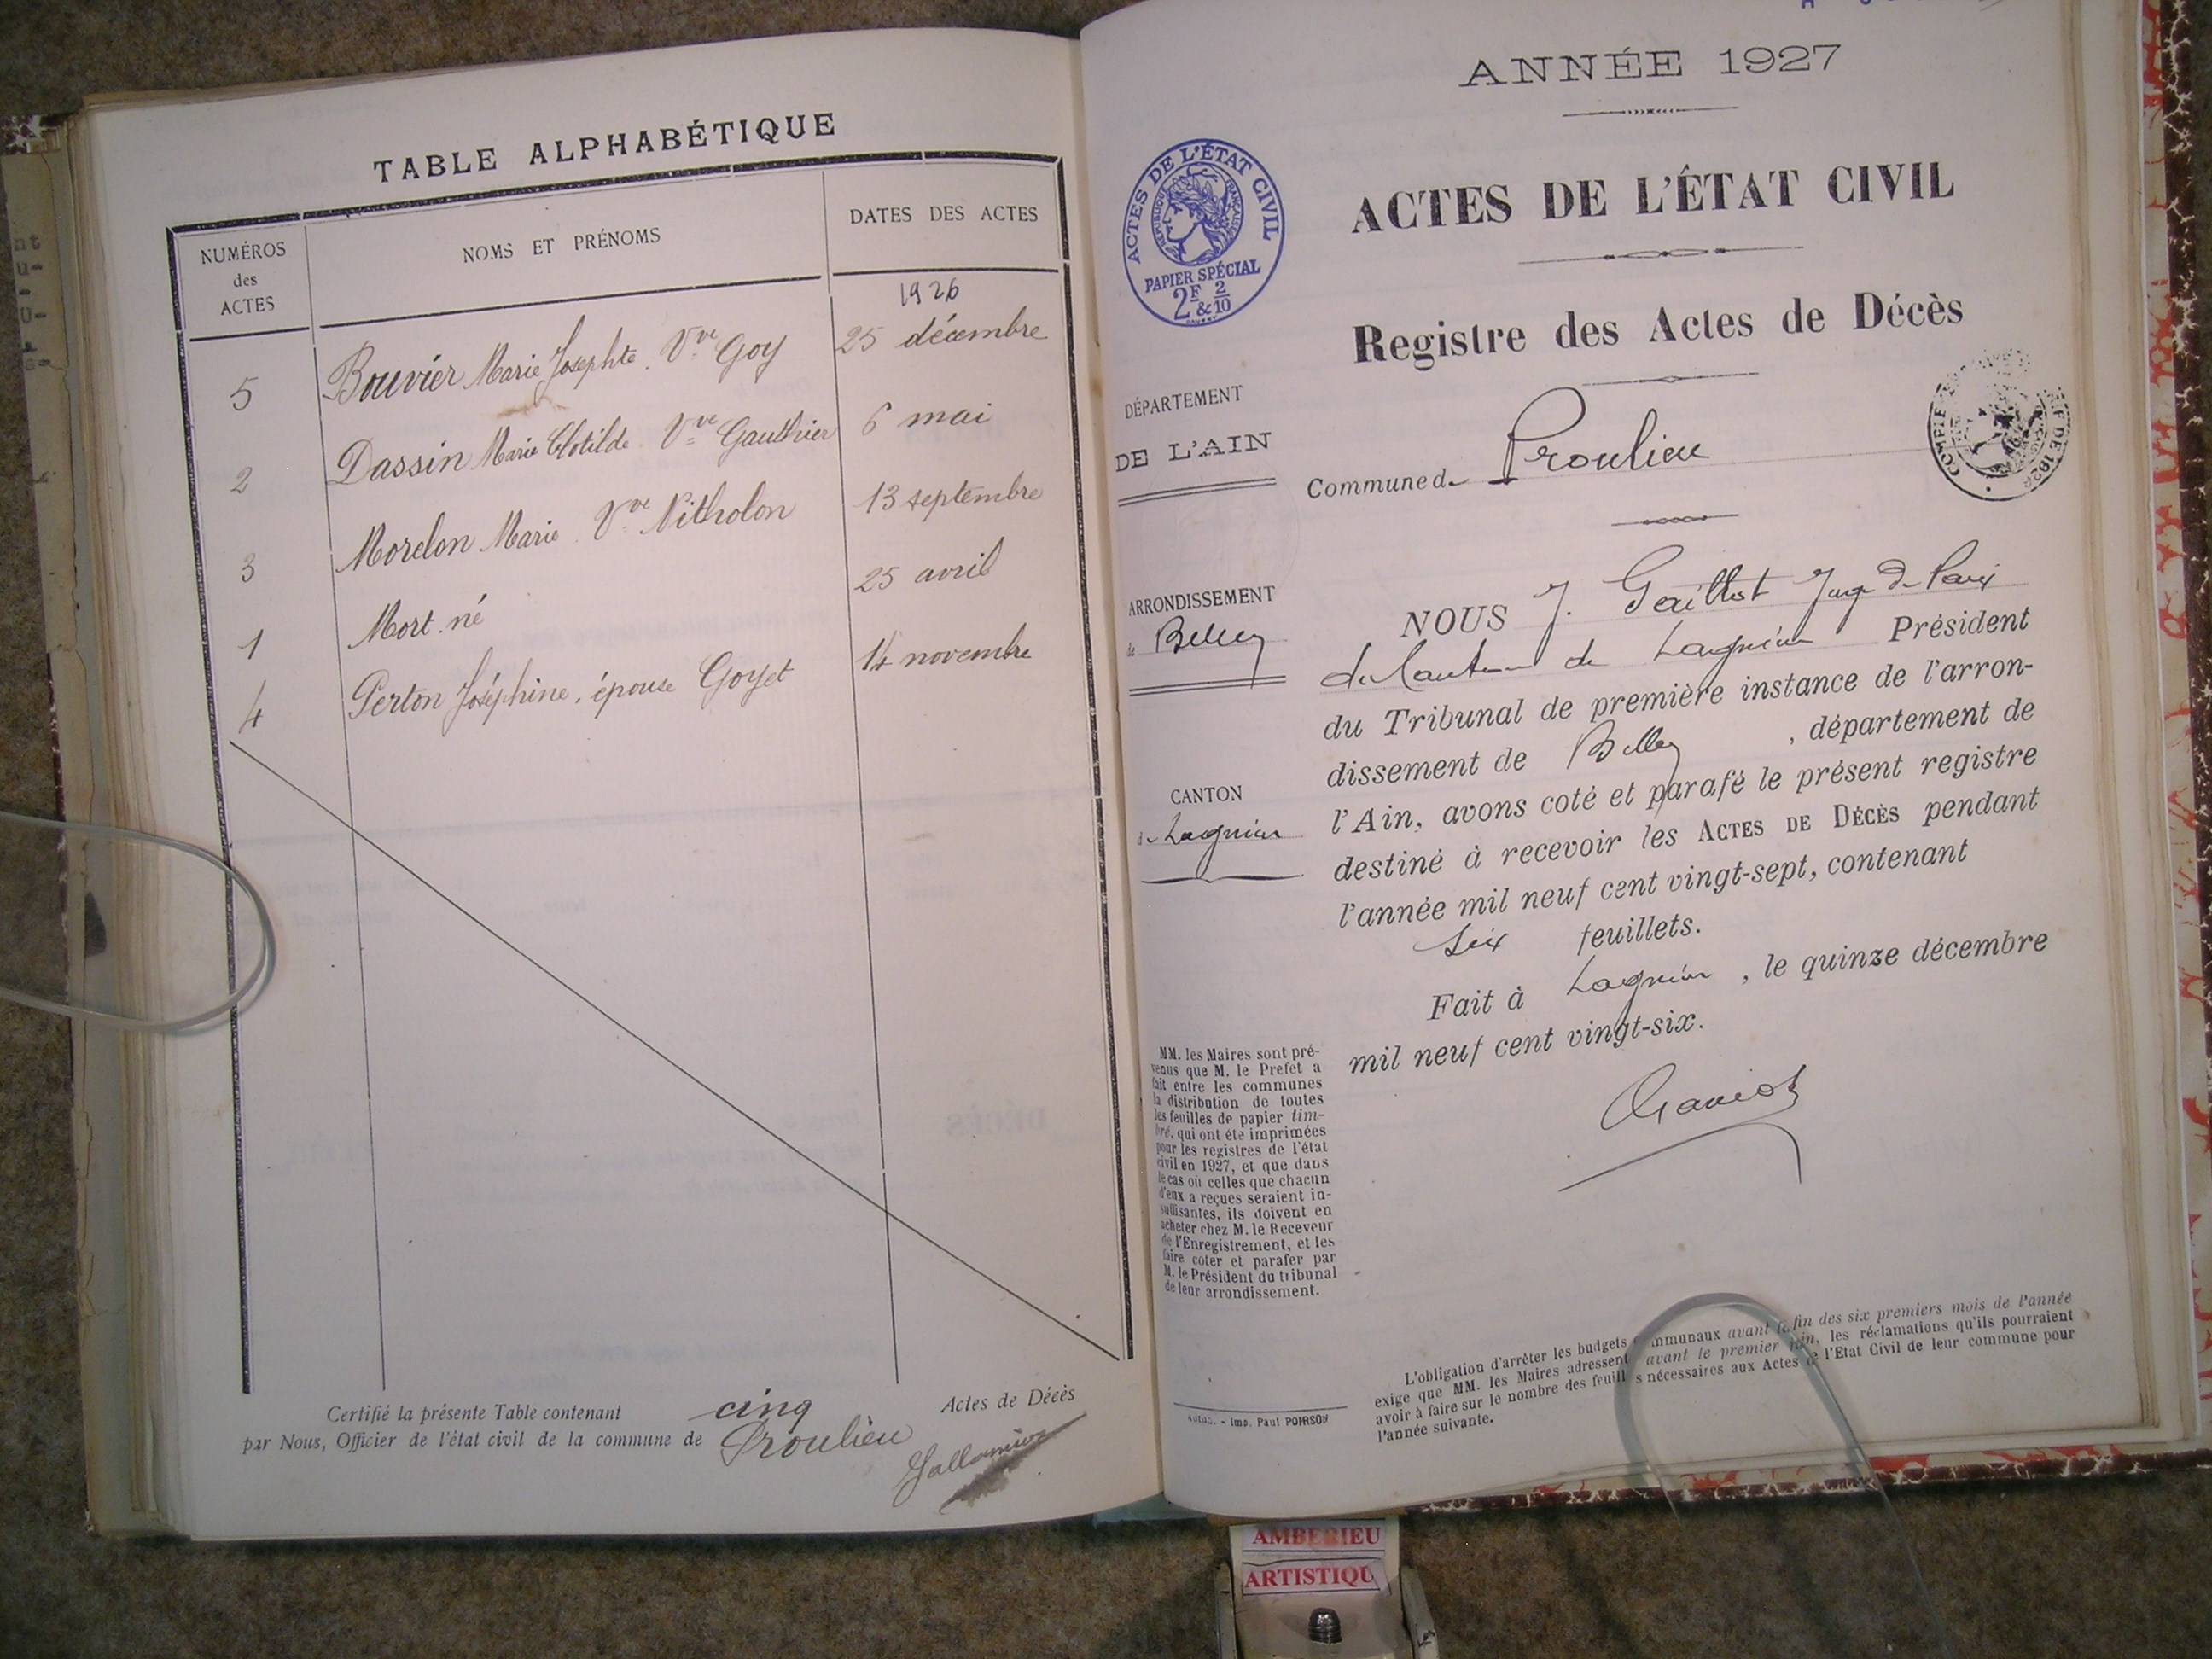 TABLE ALPHABÉTIQUE
NUMÉROS des ACTES
NOMS ET PRÉNOMS
DATES DES ACTES
1926
5 Bouvier Marie Josephte. Vve Goy 25 décembre
2 Dassin Marie Clotilde Vve Gauthier 6 mai
3 Morelon Marie. Vve Nitholon 13 septembre
1 Mort-né 25 avril
4 Perton Joséphine, épouse Goyet 14 novembre
Certifié la présente Table contenant cinq Actes de Décès
par Nous, Officier de l'état civil de la commune de Proulieu
ANNÉE 1927
ACTES DE L'ÉTAT CIVIL
RÉPUBLIQUE FRANÇAISE
PAPIER SPÉCIAL
2F & 2/10
ACTES DE L'ÊTAT CIVIL
Registre des Actes de Décès
DÉPARTEMENT
DE L'AIN
Commune de Proulieu
ARRONDISSEMENT
de Belley
CANTON
de Lagnieu
NOUS J. Juge de Paix
du Canton de Lagnieu Président
du Tribunal de première instance de l'arron-
dissement de Belley, département de
l'Ain, avons coté et parafé le présent registre
destiné à recevoir les ACTES DE DÉCÈS pendant
l'année mil neuf cent vingt-sept, contenant
six feuillets.
Fait à Lagnieu, le quinze décembre
mil neuf cent vingt-six.
MM. les Maires sont pré-
venus que M. le Prefet a
fait entre les communes
la distribution de toutes
les feuilles de papier tim-
bré, qui ont été imprimées
pour les registres de l'état
civil en 1927, et que dans
le cas où celles que chacun
d'eux a reçues seraient in-
suffisantes, ils doivent en
acheter chez M. le Receveur
de l'Enregistrement, et les
faire coter et parafer par
M. le Président du tribunal
de leur arrondissement.
Imp. Paul POIRSON
L'obligation d'arrêter les budgets communaux avant la fin des six premiers mois de l'année
exige que MM. les Maires adressent avant le premier juin, les réclamations qu'ils pourraient
avoir à faire sur le nombre des feuilles nécessaires aux Actes de l'Etat Civil de leur commune pour
l'année suivante.
AMBERIEU
ARTISTIQU